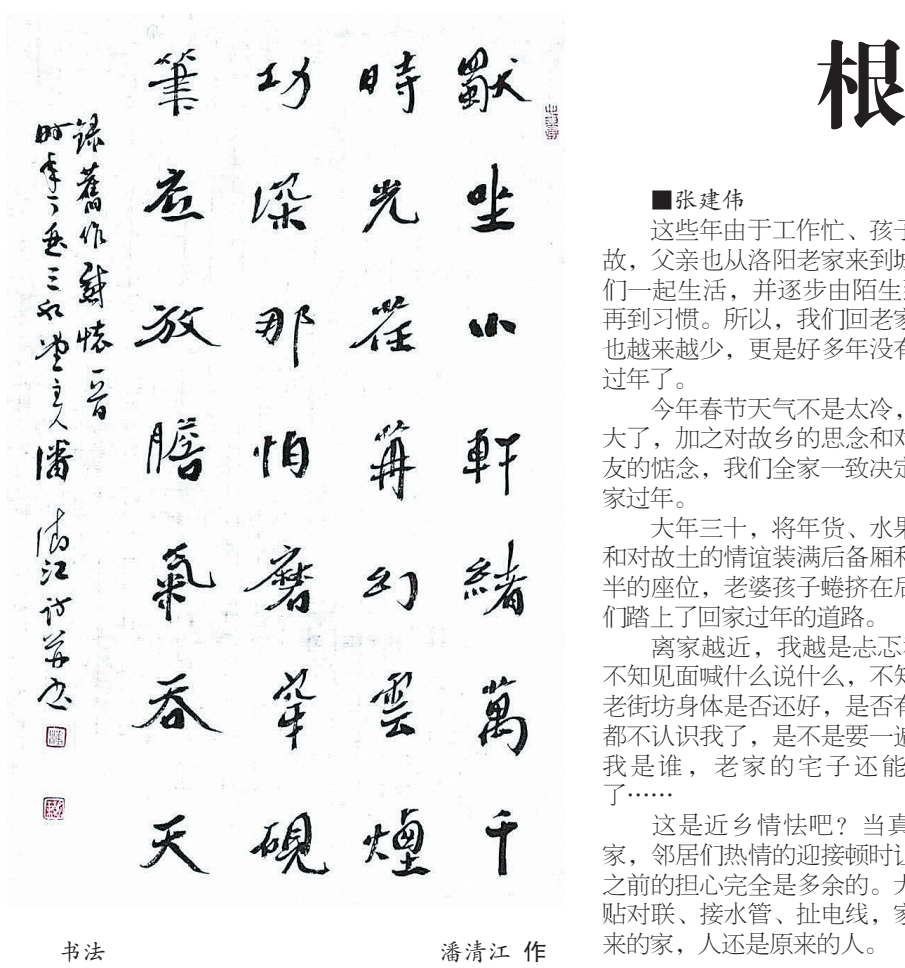 獨坐小軒緒萬千
時光荏苒幻雲煙
功深那怕磨穿硯
筆放膽氣吞天
錄舊作感懷一首
時年主人潘清江詩并書
书法
潘清江 作
根
■张建伟
这些年由于工作忙、孩子
故，父亲也从洛阳老家来到城
们一起生活，并逐步由陌生
再到习惯。所以，我们回老家
也越来越少，更是好多年没有
过年了。
今年春节天气不是太冷，
大了，加之对故乡的思念和对
友的惦念，我们全家一致决定
家过年。
大年三十，将年货、水果
和对故土的情谊装满后备厢和
半的座位，老婆孩子蜷挤在后
们踏上了回家过年的道路。
离家越近，我越是忐忑
不知见面喊什么说什么，不知
老街坊身体是否还好，是否有
都不认识我了，是不是要一遍
我是谁，老家的宅子还能
了……
这是近乡情怯吧？当真
家，邻居们热情的迎接顿时让
之前的担心完全是多余的。大
贴对联、接水管、扯电线，家
来的家，人还是原来的人。